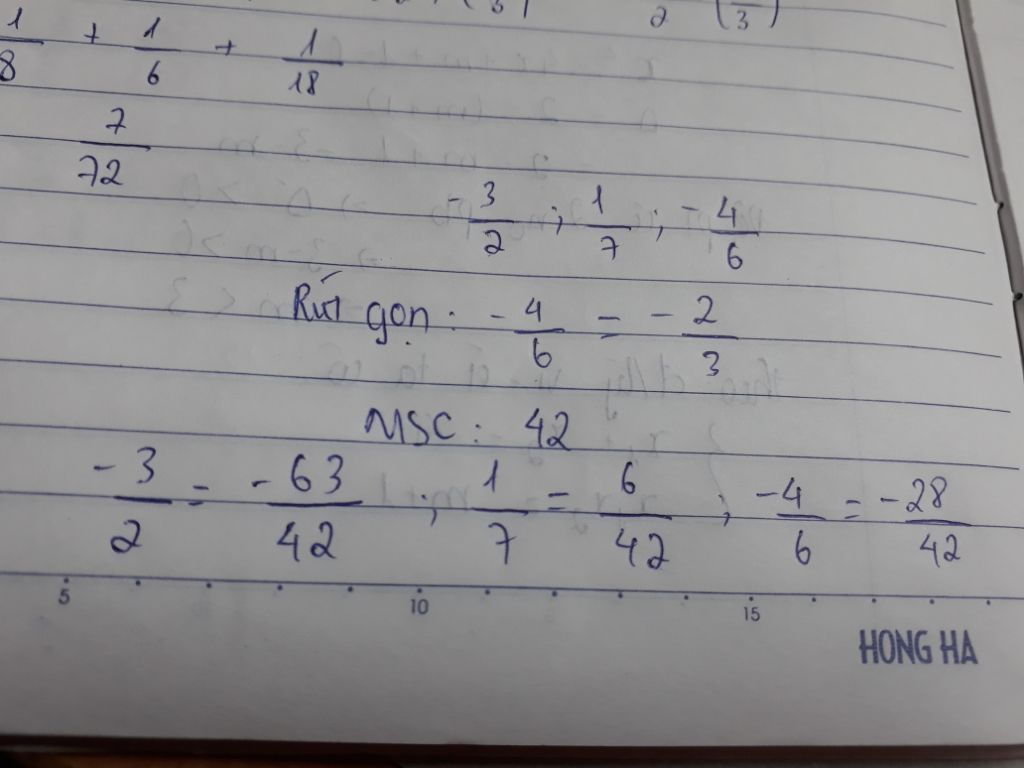 1/8 + 1/6 + 1/18
7/72
-3/2 ; 1/7 ; -4/6
Rút gọn : -4/6 = -2/3
MSC : 42
-3/2 = -63/42 ; 1/7 = 6/42 ; -4/6 = -28/42
5 10 15
HONG HA